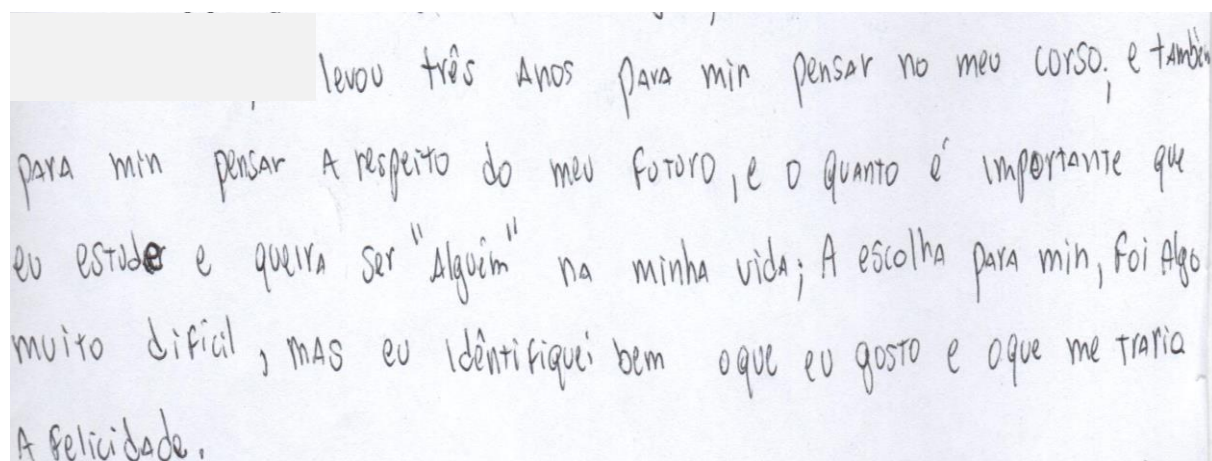 levou três anos para min pensar no meu corso; e também
para min pensar a respeito do meu fotoro, e o quanto é importante que
eu estude e queira ser "Alguém" na minha vida; A escolha para min, foi Algo
muito difícil, mas eu idêntifiquei bem oque eu gosto e oque me traria
a felicidade.